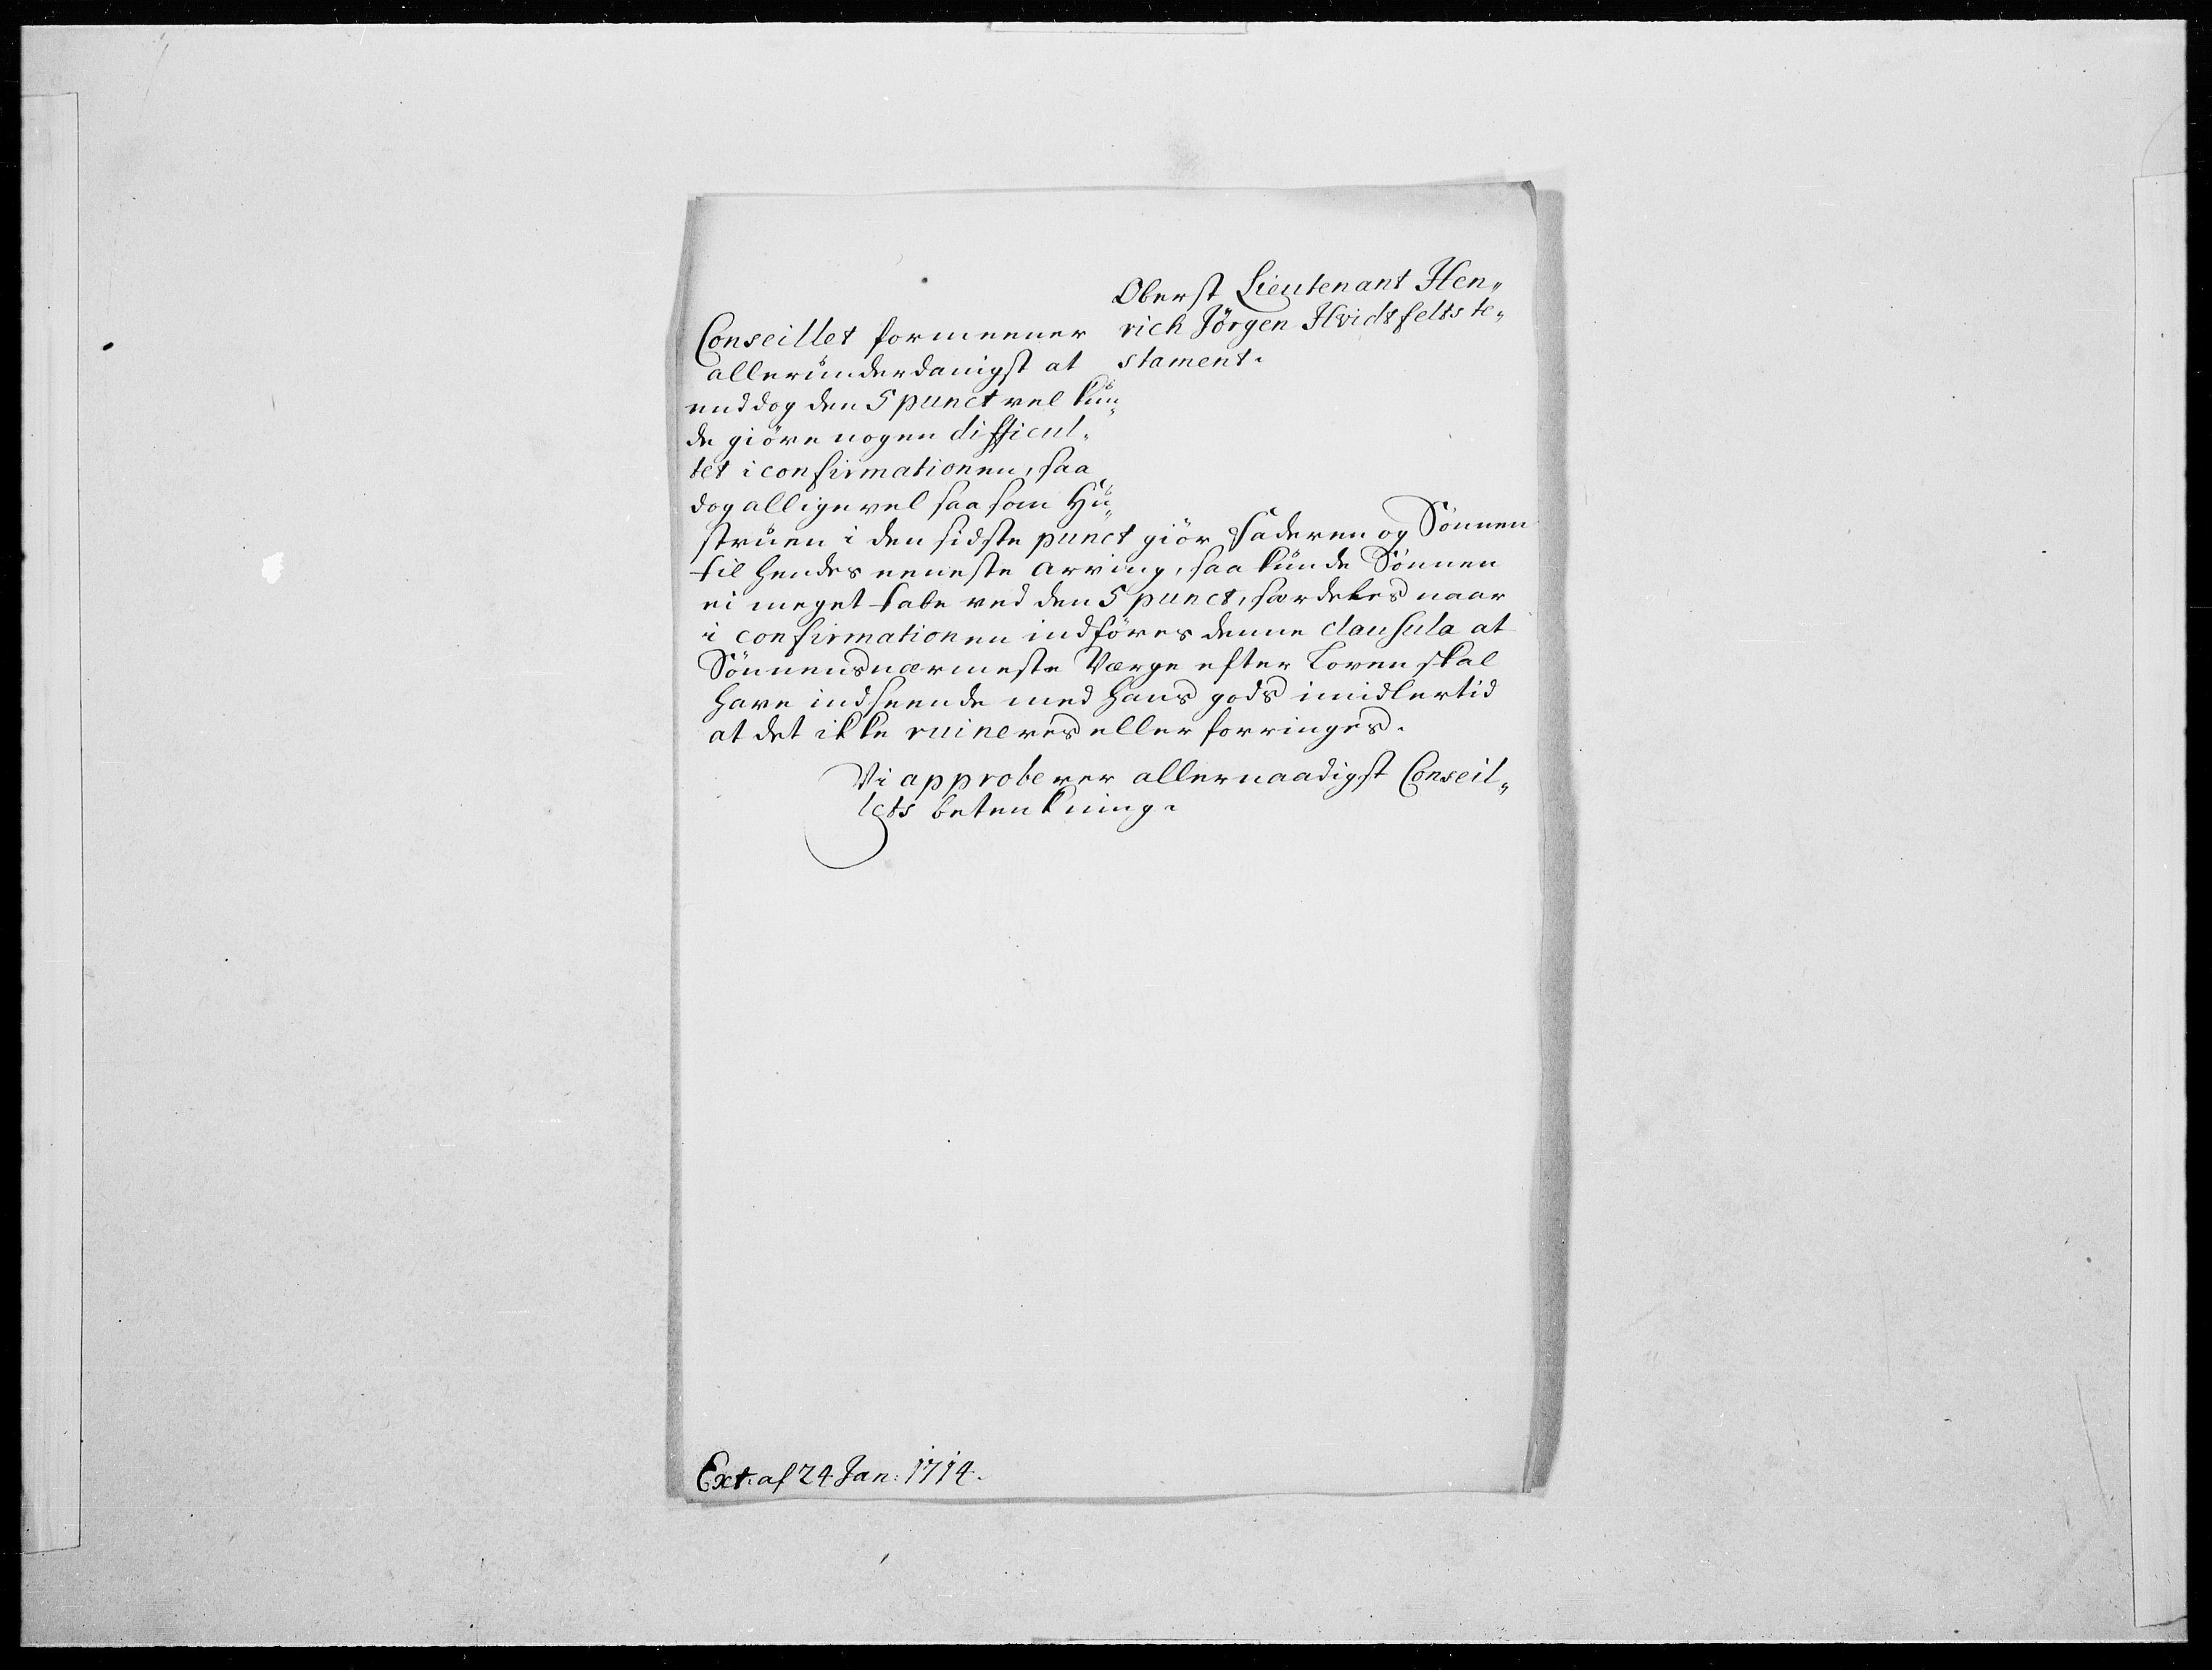 Oberst Lieutenant Hen„
rich Jörgen Hvidtfelts te„
stament.
Conseillet formeener
allerunderdanigst at
end dog den 5 punct vel kun„
de giöre nogen difficul„
tet i confirmationen, saa
dog alligevel saa som Hu„
struen i den sidste punct giör Faderen og Sönnen
til hendes eeneste Arving, saa kunde Sönnen
ei meget tabe ved den 5 punct, særdeles naar
i confirmationen indföres denne clausula at
Sönnens nærmeste Værge efter Loven skal
have indseende med hans gods imidlertid
at det ikke ruineres eller forringes.
Vi approberer allernaadigst Conseil„
lets betenkning.
Ext. af 24 Jan: 1714.